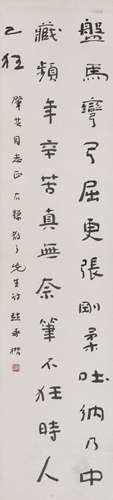 盤馬彎弓屈更張剛柔吐納乃中
藏頻年辛苦真無奈筆不狂時人
已狂
同志正 右錄散之先生詩 趙承楷